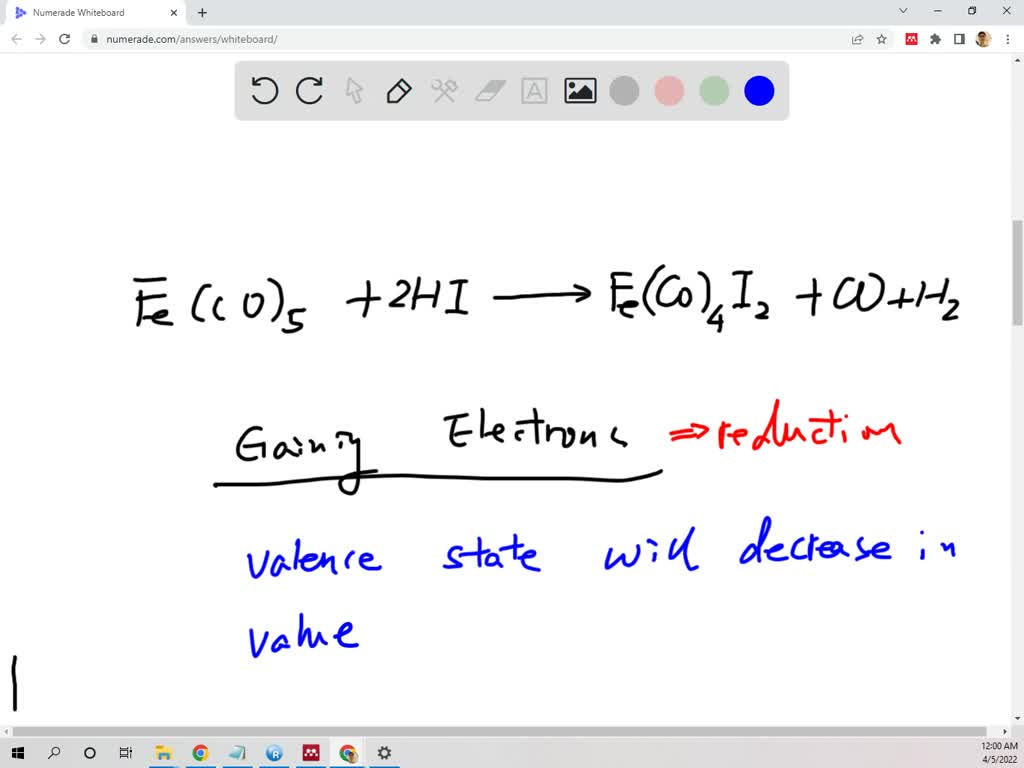 Numerade Whiteboard
numerade.com/answers/whiteboard/
A
Fe(CO)5 + 2HI → Fe(CO)4I2 + CO + H2
Gaining Electrons ⇒ reduction
valence state will decrease in
value
12:00 AM
4/5/2022